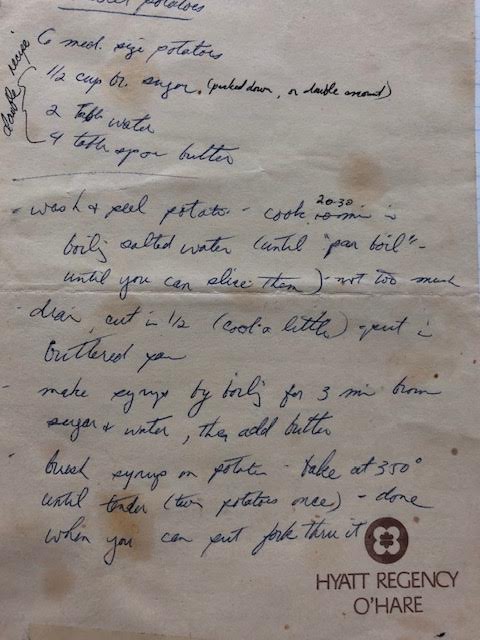 potatoes
6 med. size potatoes
1/2 cup br. sugar. (packed down, or double amount)
2 Tabl water
4 table spoon butter
double recipe
- wash & peel potato - cook 20-30 min in
boiling salted water (until "par boil" -
until you can slice them) - not too much
- drain, cut in 1/2 (cool a little) - put in
buttered pan
- make syrup by boiling for 3 min brown
sugar & water, then add butter
- brush syrup on potatoes - bake at 350°
until tender (turn potatoes once) - done
when you can put fork thru it
HYATT REGENCY
O'HARE